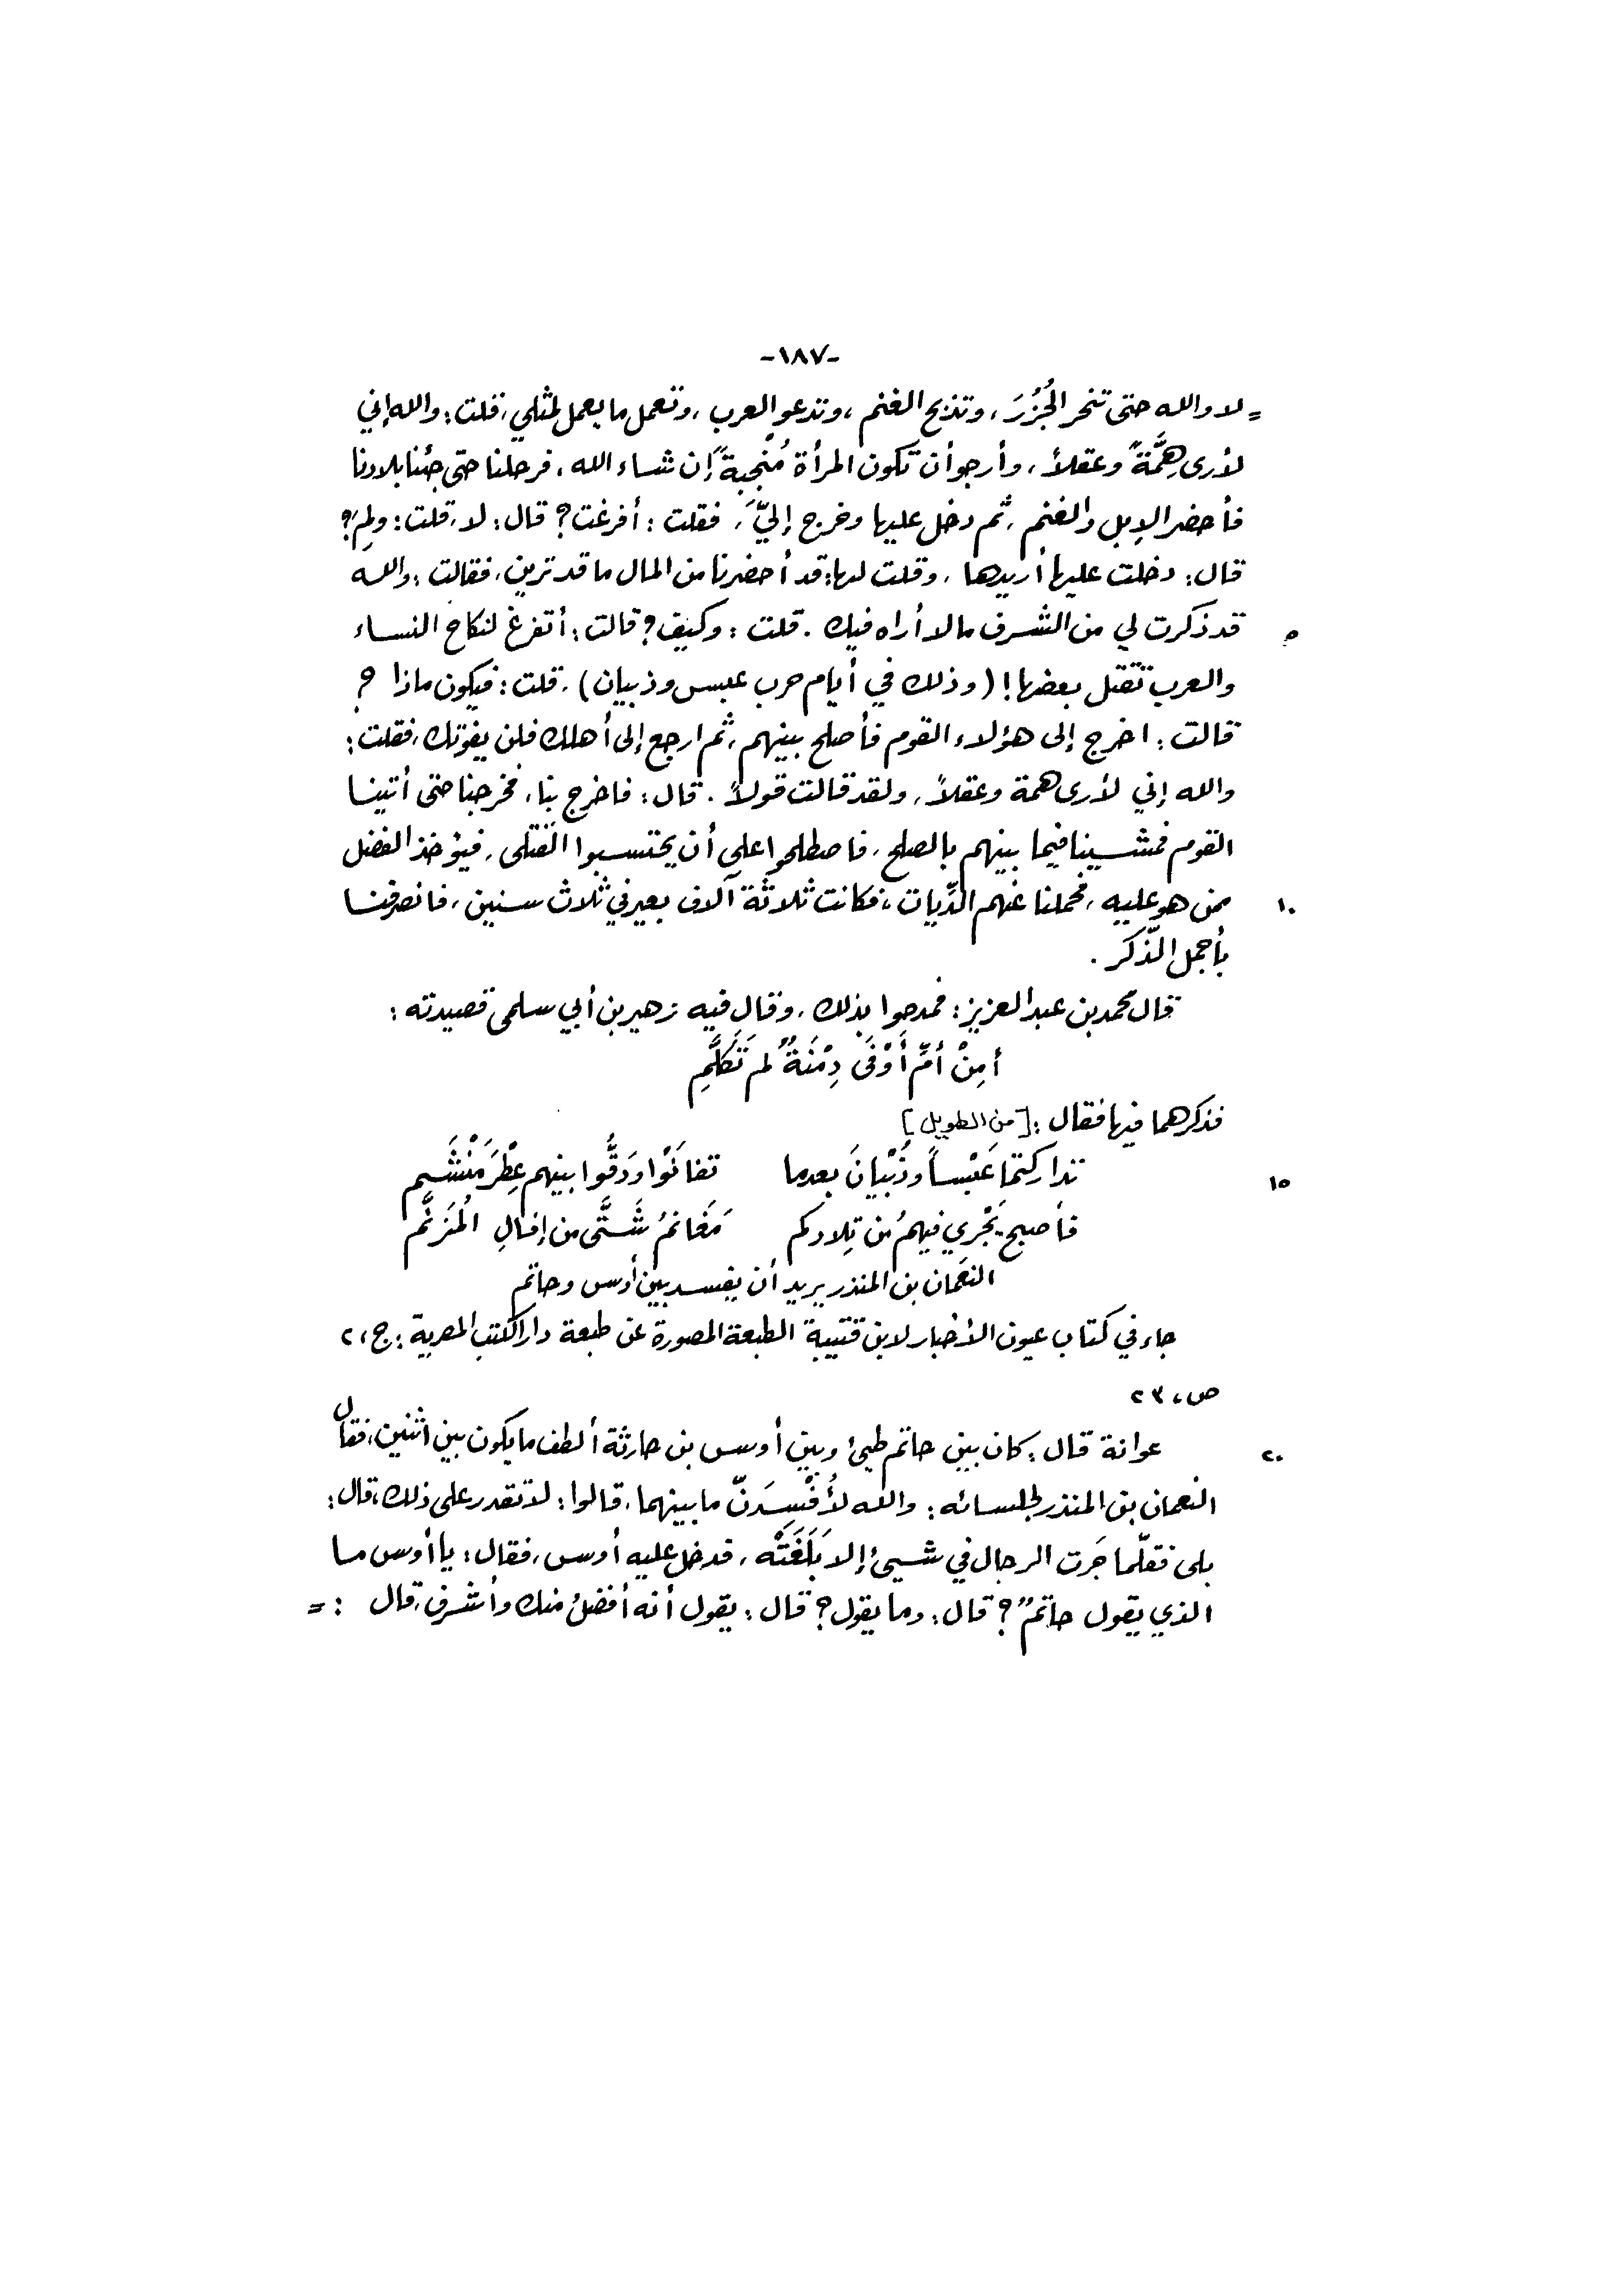 -١٨٧-
= لا والله حتى تنحر الجُزُرَ، وتذبح الغنم، وتدعو العرب، وتعمل ما يعمل لمثلي، قلت: والله إني
لأرى هِمَّةً وعقلاً، وأرجو أن تكون المرأة مُنْجِبةً إن شاء الله، فرحلنا حتى جئنا بلادنا
فأحضر الإبل والغنم، ثم دخل عليها وخرج إليَّ، فقلت: أفرغت؟ قال: لا، قلت: ولِمَ؟
قال: دخلت عليها أريدها، وقلت لها: قد أحضرنا من المال ما قد ترين، فقالت: والله
٥ قد ذكرت لي من الشرف ما لا أراه فيك. قلت: وكيف؟ قالت: أتفرغ لنكاح النساء
والعرب تقتل بعضها! (وذلك في أيام حرب عبس وذبيان)، قلت: فيكون ماذا؟
قالت: اخرج إلى هؤلاء القوم فأصلح بينهم، ثم ارجع إلى أهلك فلن يفوتك، فقلت:
والله إني لأرى همة وعقلاً، ولقد قالت قولاً. قال: فاخرج بنا، فخرجنا حتى أتينا
القوم فمشينا فيما بينهم بالصلح، فاصطلحوا على أن يحتسبوا القتلى، فيؤخذ الفضل
١٠ ممن هو عليه، فحملنا عنهم الدِّيات، فكانت ثلاثة آلاف بعير في ثلاث سنين، فانصرفنا
بأجمل الذّكر.
قال محمد بن عبد العزيز: فمدحوا بذلك، وقال فيه زهير بن أبي سلمى قصيدته:
أمِنْ أمِّ أَوْفَى دِمْنَةٌ لم تَكَلَّمِ
فذكرهما فيها فقال: [من الطويل]
١٥ تداركتما عَبْساً وذُبْيانَ بعدما تفانَوْا ودَقُّوا بينهم عِطْرَ مَنْشَمِ
فأصبح يَجْري فيهمُ من تِلادكم مَغَانمُ شَتَّى من إفالِ المُزَنَّم
النعمان بن المنذر يريد أن يفسد بين أوس وحاتم
جاء في كتاب عيون الأخبار لابن قتيبة الطبعة المصورة عن طبعة دار الكتب المصرية: ج، ٢
ص، ٢٣
٢٠ عوانة قال: كان بين حاتم طيئ وبين أوس بن حارثة ألطف ما يكون بين اثنين، فقال
النعمان بن المنذر لجلسائه: والله لأُفْسِدَنّ ما بينهما، قالوا: لا تقدر على ذلك، قال:
بلى فقلّما جَرت الرجال في شيئ إلا بَلَغَتْه، فدخل عليه أوس، فقال: يا أوس ما
الذي يقول حاتمٌ؟ قال: وما يقول؟ قال: يقول أنه أفضلُ منك وأشرف، قال: =